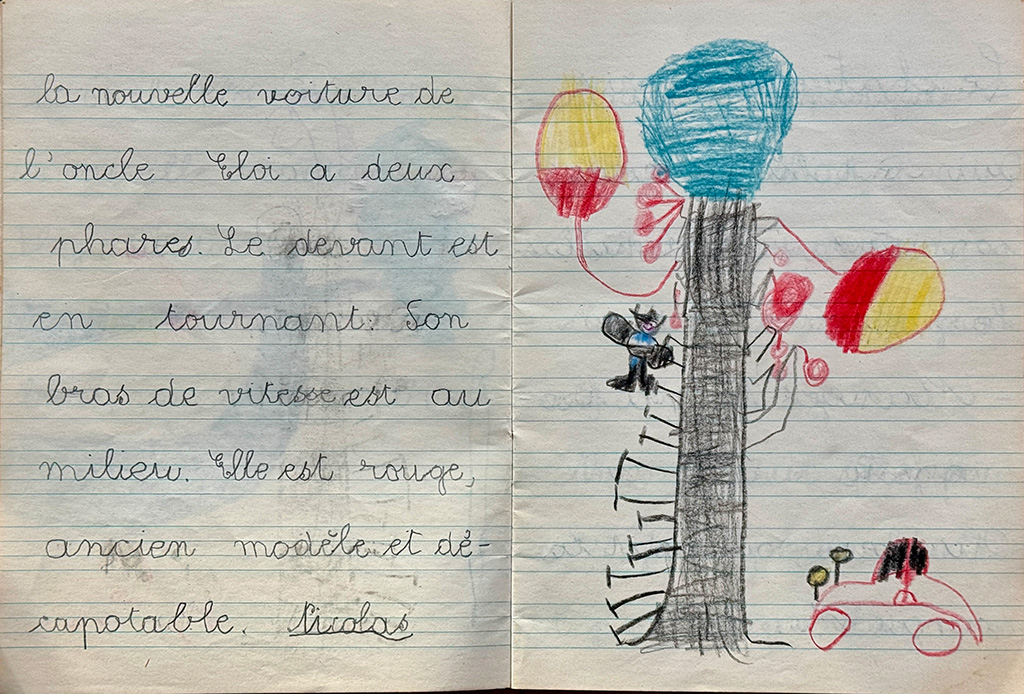 la nouvelle voiture de
l'oncle Eloi a deux
phares. Le devant est
en tournant. Son
bras de vitesse est au
milieu. Elle est rouge,
ancien modèle et dé-
capotable. Nicolas